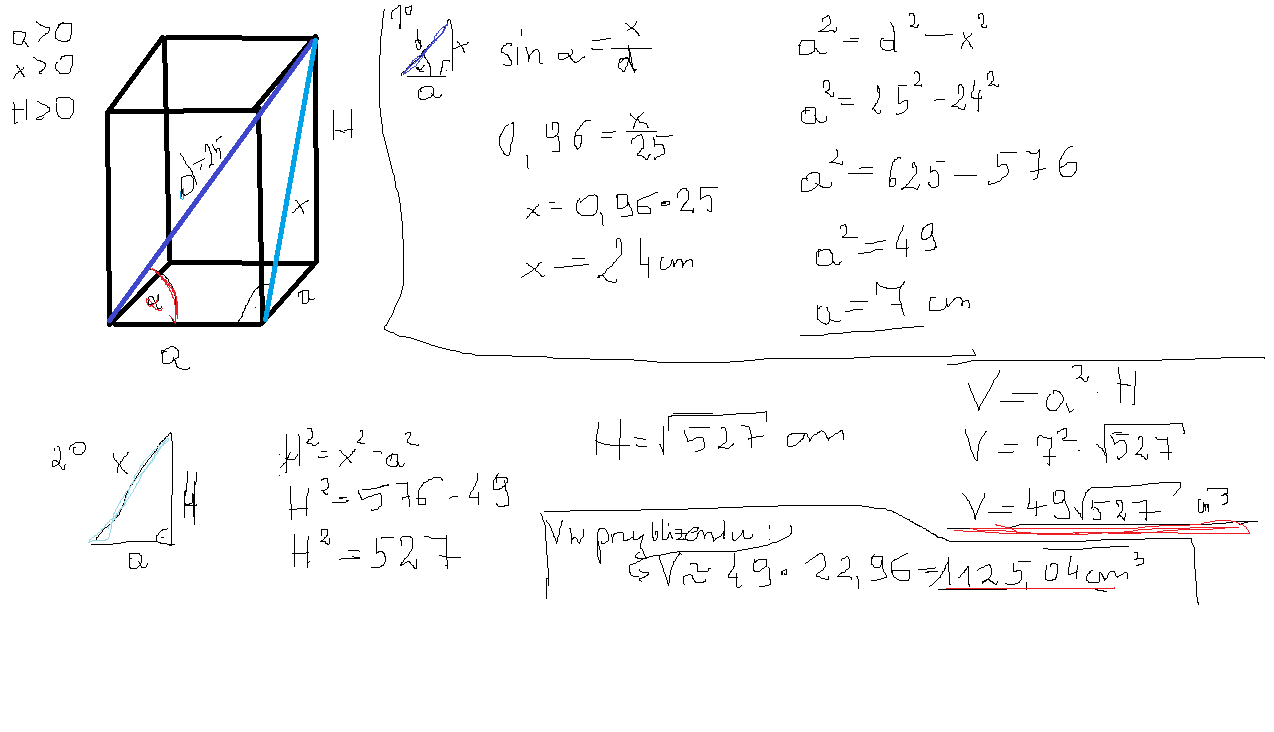 a>0
x>0
H>0
d=25
H
x
α
a
a
1°
d
x
α
a
sin α = x/d
0,96 = x/25
x = 0,96·25
x = 24cm
a² = d² − x²
a² = 25² − 24²
a² = 625 − 576
a² = 49
a = 7 cm
2°
x
H
a
H² = x² − a²
H² = 576 − 49
H² = 527
H = √527 cm
V = a² · H
V = 7² · √527
V = 49√527 cm³
V w przybliżeniu:
V ≈ 49 · 22,96 = 1125,04 cm³